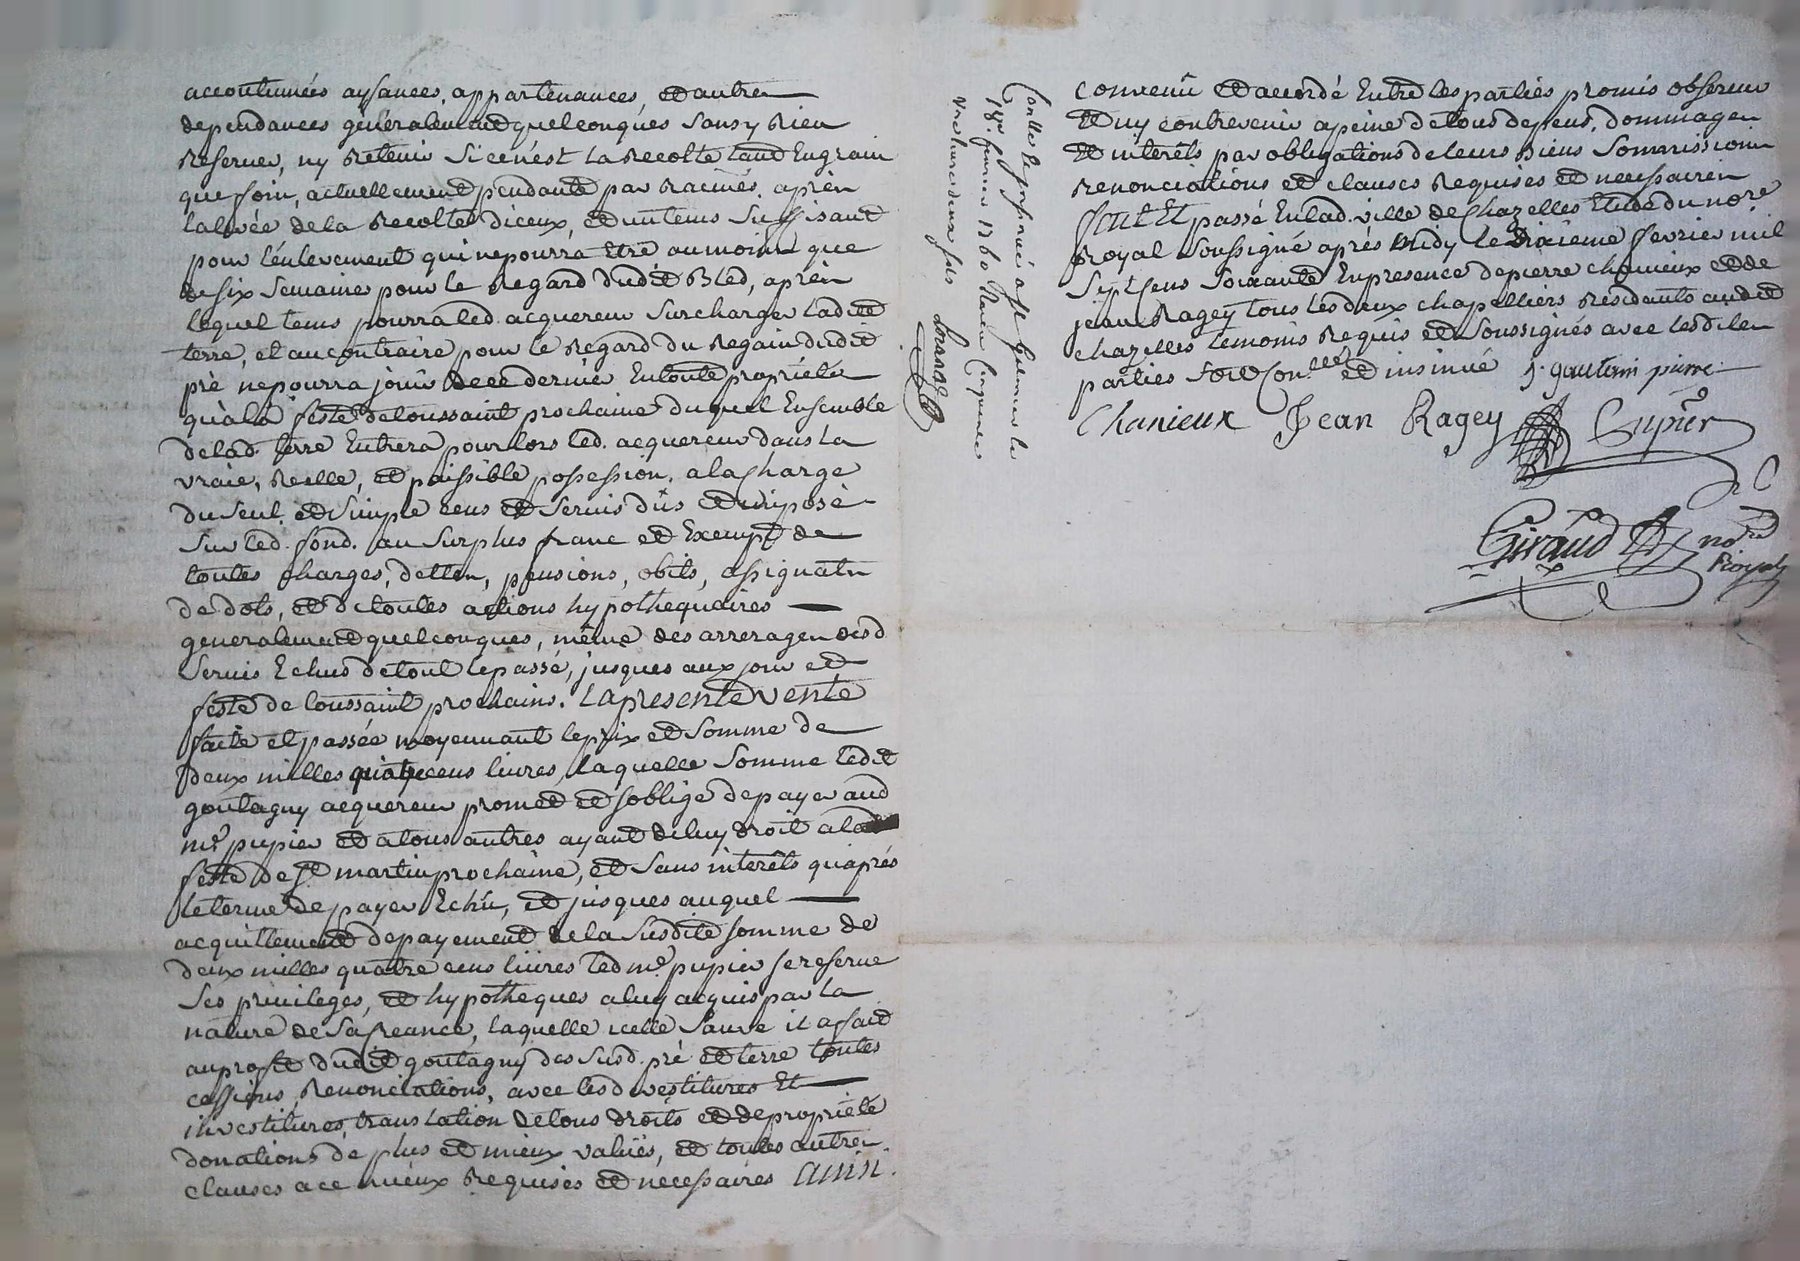 accoutumées aysances, appartenances, et autres
dependances generalement quelconques sans y Rien
Reserver, ny Retenir si ce n'est la Recolte tant En grain
que foin, actuellement pendante par Racines, après
la levée de la Recolte d'iceux, et un tems suffisant
pour l'enlevement qui ne pourra Etre au moins que
de six semaine pour le Regard dudit Bled, après
lequel tems pourra led. acquereur surcharger ladite
terre, et au contraire pour le Regard du Regain dudit
pré ne pourra jouir de ce dernier En toute propriété
qu'à la feste de toussaint prochaine duquel Ensemble
de lad. terre Entrera pour lors led. acquereur dans la
vraie, Reelle, et paissible possession, a la charge
du seul, et simple cens et servis dûs et imposé
sur led. fond. au surplus franc et Exempt de
toutes charges, dettes, pensions, obits, assignats
de dots, et de toutes actions hypothequaires
generalement quelconques, même des arrerages desd
servis Echus de tout le passé, jusques aux jour et
feste de toussaint prochains. La presente vente
faite et passée moyennant le prix et somme de
deux milles quatre cens livres, laquelle somme ledit
goutagny acquereur promet et s'oblige de payer aud
mr. pupier et a tous autres ayant de luy droit a la
feste de st martin prochaine, et sans interêts qu'après
le terme de payer Echû, et jusques auquel
acquittement de payement de la susdite somme de
deux milles quatre cens livres led mr. pupier se reserve
ses privileges, et hypotheques a luy acquis par la
nature de sa creance, laquelle icelle sauve il a fait
au profit dudit goutagny des susd. pré et terre toutes
cessions, Renonciations, avec les devestitures Et
investitures, translation de tous droits et de propriété
donations de plus et mieux values, et toutes autres
clauses a ce mieux Requises et necessaires ainsi
Conllé et insinué a st Galmier le
1760 Reçu
vingt deux sols
convenu et accordé Entre les parties promis observer
et n'y contrevenir a peine de tous depens, dommages
et interêts par obligations de leurs Biens sommissions
renonciations et clauses Requises et necessaires
fait Et passé En lad. ville de Chazelles Etude du nore
Royal soussigné aprés midy le dixieme fevrier mil
sept cens soixante En presence de pierre chanieux et de
jean Ragey tous les deux chapelliers Residants audit
chazelles temoins Requis et soussignés avec lesdites
parties soit Conllé et insinué J. gauterin pierre
Chanieux Jean Ragey Pupier
Giraud nore
Royal